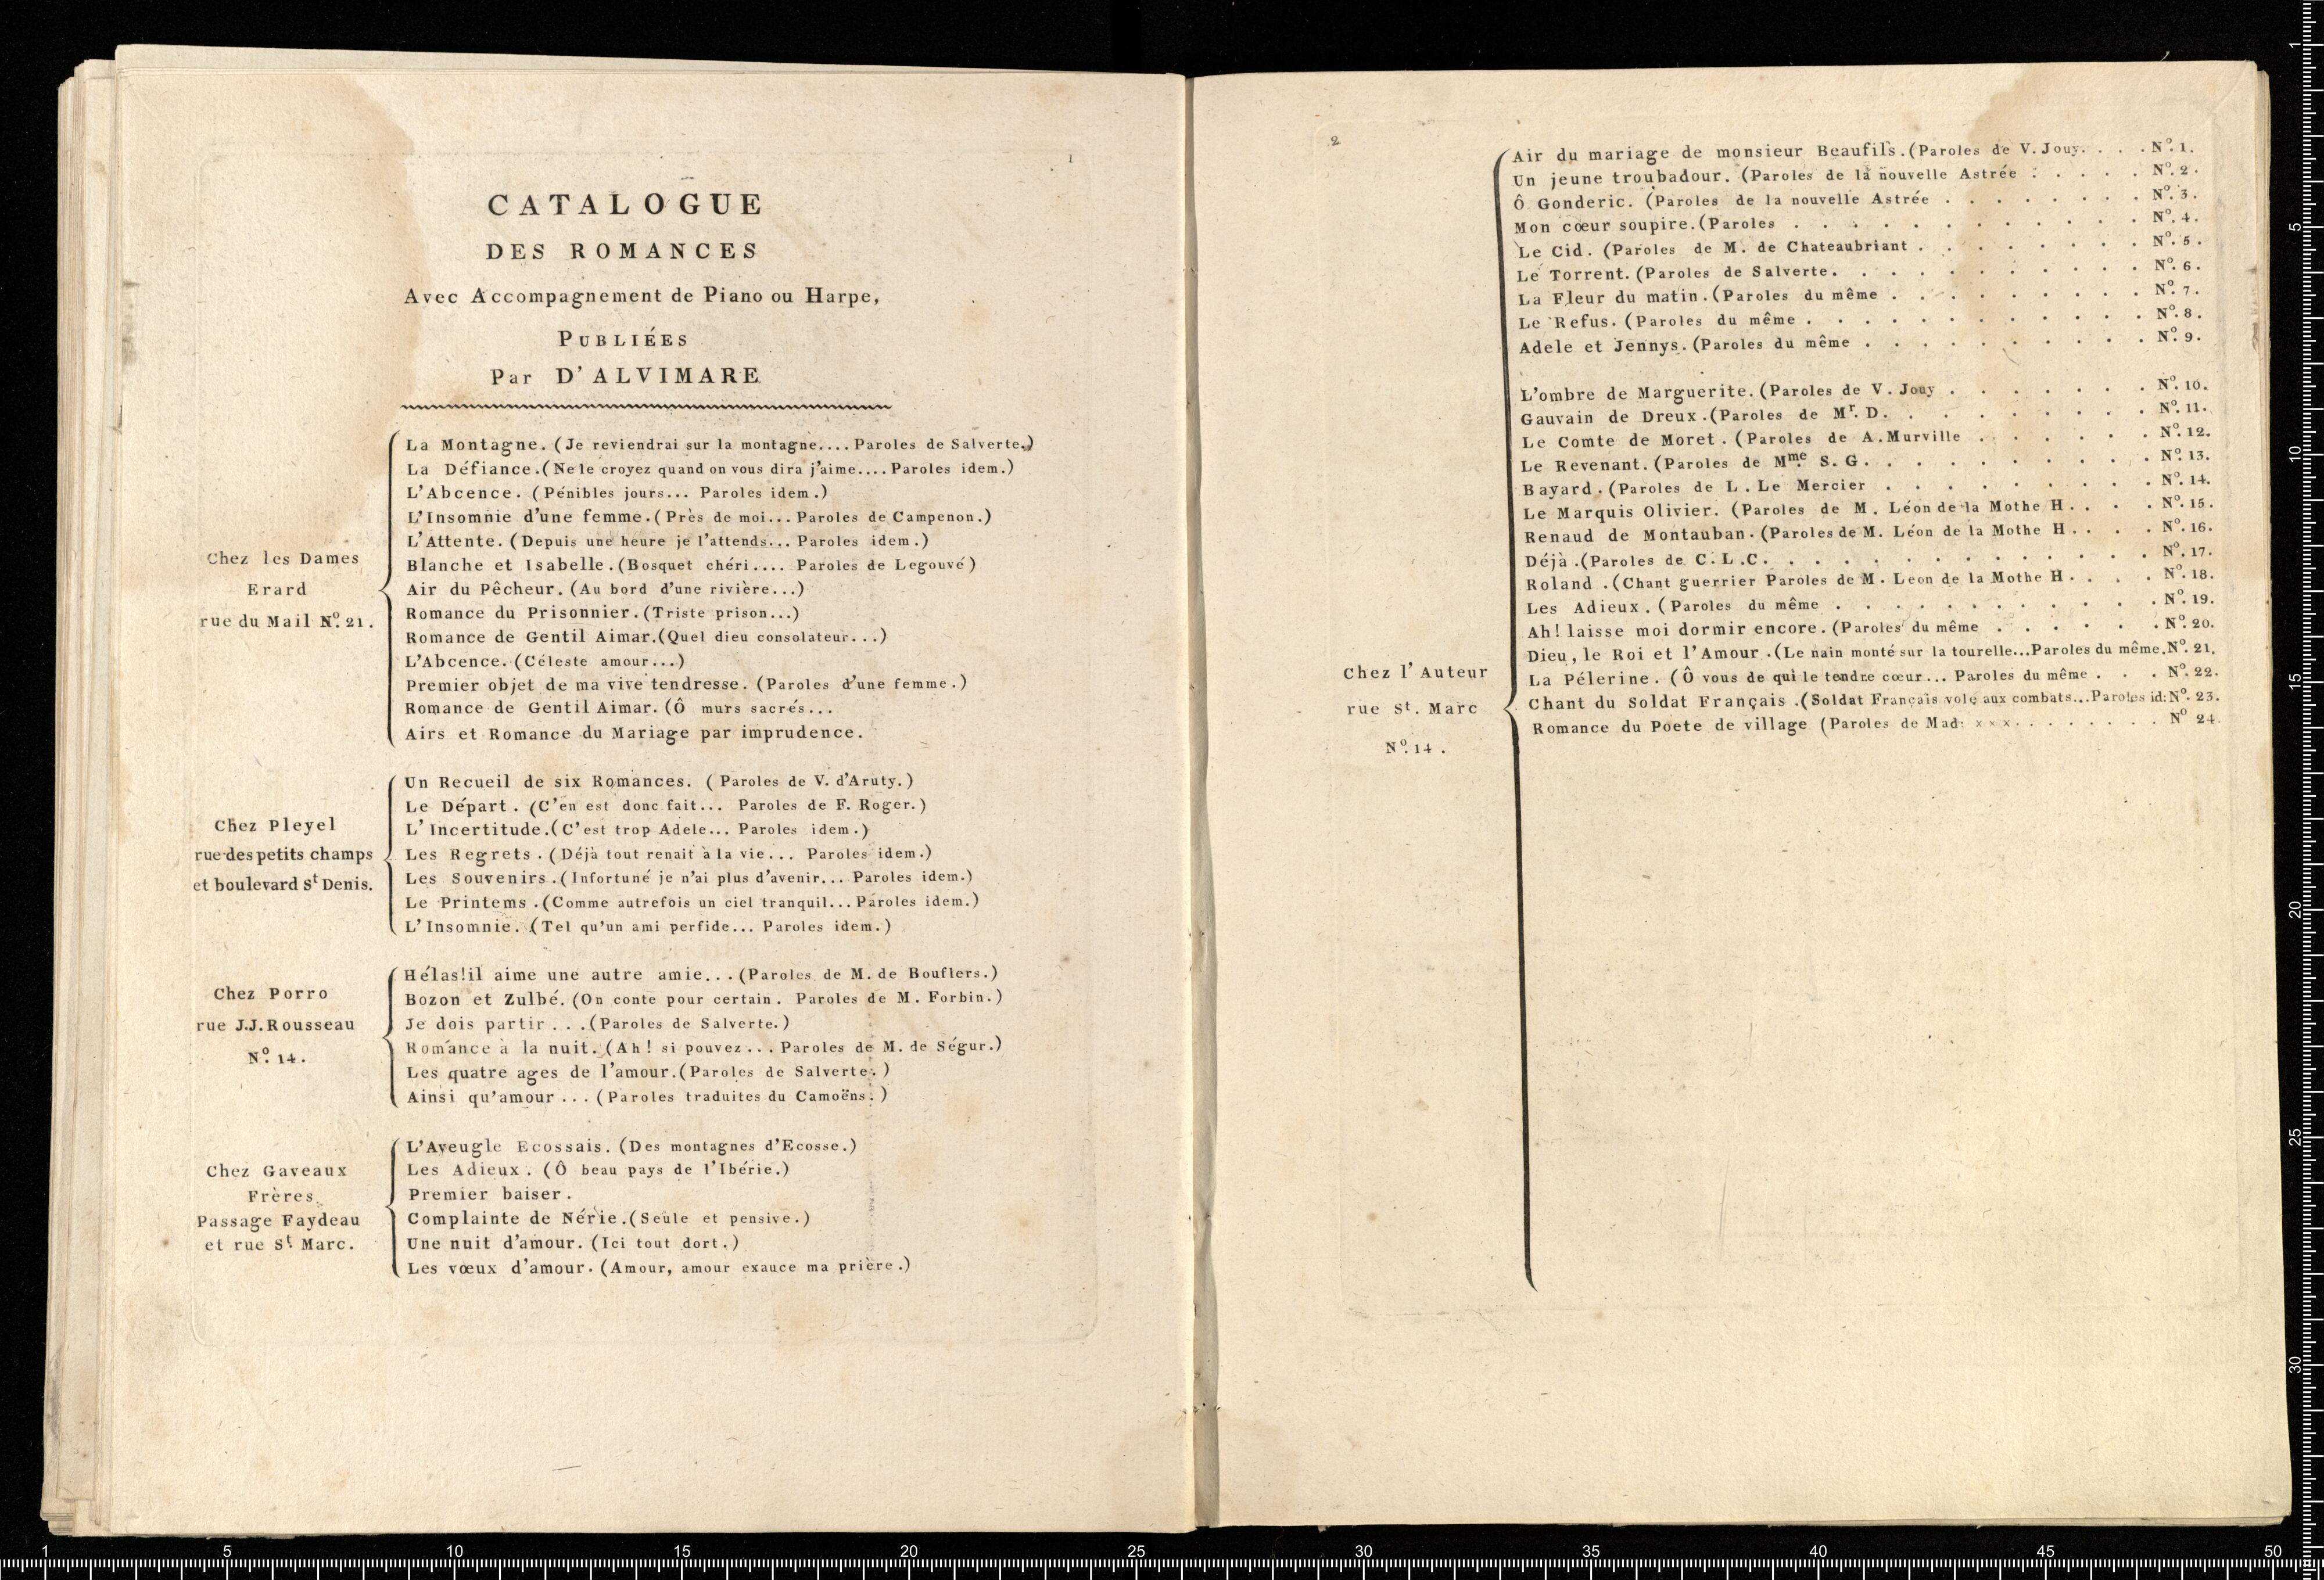 1
CATALOGUE
DES ROMANCES
Avec Accompagnement de Piano ou Harpe,
PUBLIÉES
Par D'ALVIMARE
Chez les Dames
Erard
rue du Mail Nº. 21.
La Montagne. (Je reviendrai sur la montagne.... Paroles de Salverte.)
La Défiance. (Ne le croyez quand on vous dira j'aime.... Paroles idem.)
L'Abcence. (Pénibles jours... Paroles idem.)
L'Insomnie d'une femme. (Près de moi... Paroles de Campenon.)
L'Attente. (Depuis une heure je l'attends... Paroles idem.)
Blanche et Isabelle. (Bosquet chéri.... Paroles de Legouvé)
Air du Pêcheur. (Au bord d'une rivière...)
Romance du Prisonnier. (Triste prison...)
Romance de Gentil Aimar. (Quel dieu consolateur...)
L'Abcence. (Céleste amour...)
Premier objet de ma vive tendresse. (Paroles d'une femme.)
Romance de Gentil Aimar. (Ô murs sacrés...
Airs et Romance du Mariage par imprudence.
Chez Pleyel
rue des petits champs
et boulevard St Denis.
Un Recueil de six Romances. (Paroles de V. d'Aruty.)
Le Départ. (C'en est donc fait... Paroles de F. Roger.)
L'Incertitude. (C'est trop Adele... Paroles idem.)
Les Regrets. (Déjà tout renait à la vie... Paroles idem.)
Les Souvenirs. (Infortuné je n'ai plus d'avenir... Paroles idem.)
Le Printems. (Comme autrefois un ciel tranquil... Paroles idem.)
L'Insomnie. (Tel qu'un ami perfide... Paroles idem.)
Chez Porro
rue J.J. Rousseau
Nº. 14.
Hélas! il aime une autre amie... (Paroles de M. de Bouflers.)
Bozon et Zulbé. (On conte pour certain. Paroles de M. Forbin.)
Je dois partir... (Paroles de Salverte.)
Romance à la nuit. (Ah! si pouvez... Paroles de M. de Ségur.)
Les quatre ages de l'amour. (Paroles de Salverte.)
Ainsi qu'amour... (Paroles traduites du Camoëns.)
Chez Gaveaux
Frères
Passage Faydeau
et rue St. Marc.
L'Aveugle Ecossais. (Des montagnes d'Ecosse.)
Les Adieux. (Ô beau pays de l'Ibérie.)
Premier baiser.
Complainte de Nérie. (Seule et pensive.)
Une nuit d'amour. (Ici tout dort.)
Les vœux d'amour. (Amour, amour exauce ma prière.)
2
Chez l'Auteur
rue St. Marc
Nº. 14.
Air du mariage de monsieur Beaufils. (Paroles de V. Jouy. . . . Nº. 1.
Un jeune troubadour. (Paroles de la nouvelle Astrée . . . . . Nº. 2.
Ô Gonderic. (Paroles de la nouvelle Astrée . . . . . . . . Nº. 3.
Mon cœur soupire. (Paroles . . . . . . . . . . Nº. 4.
Le Cid. (Paroles de M. de Chateaubriant . . . . . . . . Nº. 5.
Le Torrent. (Paroles de Salverte. . . . . . . . . . Nº. 6.
La Fleur du matin. (Paroles du même . . . . . . . . . Nº. 7.
Le Refus. (Paroles du même . . . . . . . . . . . Nº. 8.
Adele et Jennys. (Paroles du même . . . . . . . . . . Nº. 9.
L'ombre de Marguerite. (Paroles de V. Jouy . . . . . . . Nº. 10.
Gauvain de Dreux. (Paroles de Mr. D. . . . . . . . . Nº. 11.
Le Comte de Moret. (Paroles de A. Murville . . . . . . Nº. 12.
Le Revenant. (Paroles de Mme. S. G. . . . . . . . . Nº. 13.
Bayard. (Paroles de L. Le Mercier . . . . . . . . . Nº. 14.
Le Marquis Olivier. (Paroles de M. Léon de la Mothe H. . . . Nº. 15.
Renaud de Montauban. (Paroles de M. Léon de la Mothe H. . . . Nº. 16.
Déjà. (Paroles de C. L. C. . . . . . . . . . . . Nº. 17.
Roland. (Chant guerrier Paroles de M. Leon de la Mothe H. . . . Nº. 18.
Les Adieux. (Paroles du même . . . . . . . . . . . Nº. 19.
Ah! laisse moi dormir encore. (Paroles du même . . . . . . Nº. 20.
Dieu, le Roi et l'Amour. (Le nain monté sur la tourelle... Paroles du même. Nº. 21.
La Pélerine. (Ô vous de qui le tendre cœur... Paroles du même . . . Nº. 22.
Chant du Soldat Français. (Soldat Français vole aux combats... Paroles id: Nº. 23.
Romance du Poete de village (Paroles de Mad: x x x . . . . . . . . Nº 24.
1
5
10
15
20
25
30
35
40
45
50
1
5
10
15
20
25
30